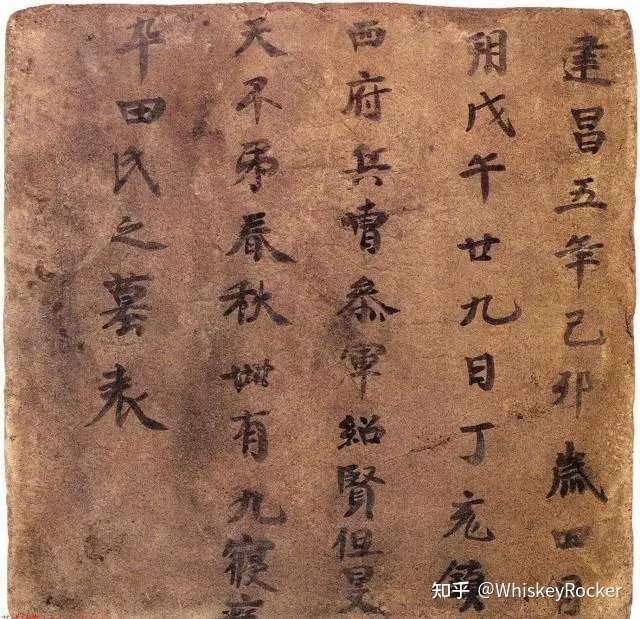 建昌五年己卯歲四月
朔戊午廿九日丁亥鎮
西府兵曹叅軍紹賢但旻
天不弔春秋卌有九寢疾
卒田氏之墓表
知乎 @WhiskeyRocker